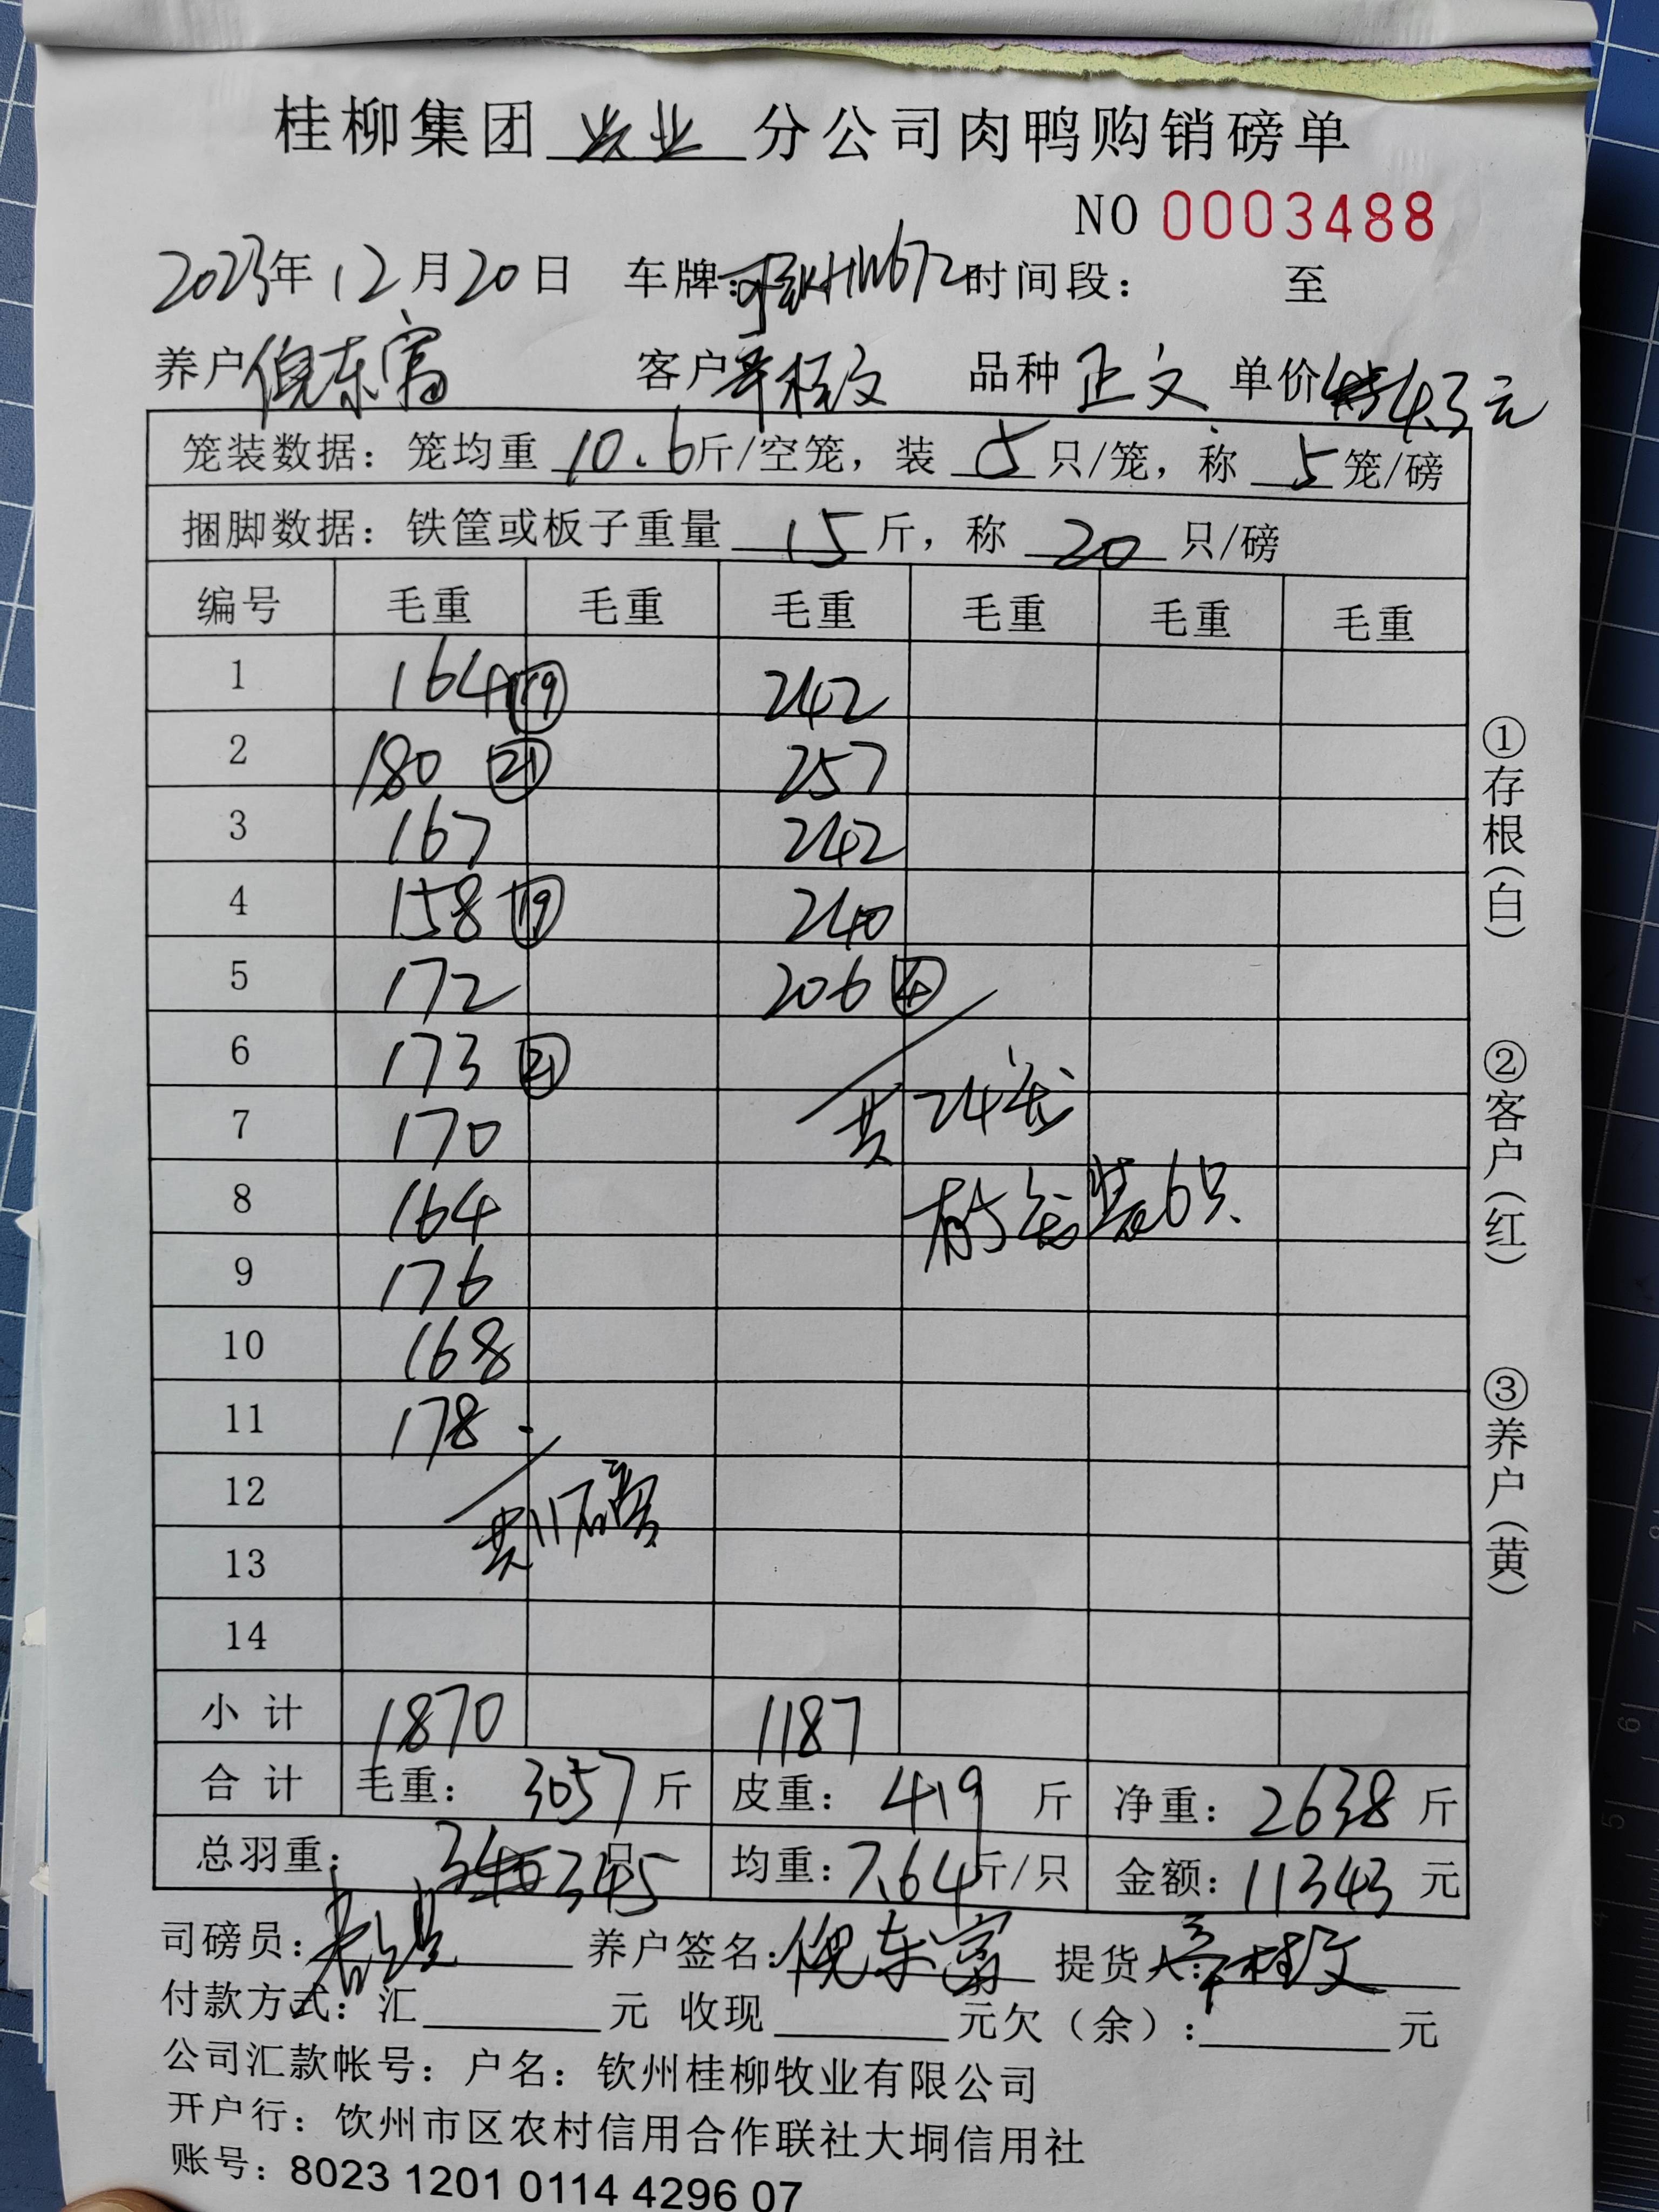 桂柳集团 业 分公司肉鸭购销磅单
NO 0003488
2023年12月20日 车牌: 时间段: 至
养户 倪东富 客户 桂文 品种 正文 单价 4.3元
笼装数据: 笼均重 10.6斤/空笼, 装 5 只/笼, 称 5 笼/磅
捆脚数据: 铁筐或板子重量 15 斤, 称 20 只/磅
编号 毛重 毛重 毛重 毛重 毛重 毛重
1 164 ⑲ 242
2 180 ㉑ 257
3 167 242
4 158 ⑲ 240
5 172 206 ④
6 173 ㉑
7 170 共24笼
8 164 有5笼装6只
9 176
10 168
11 178
12 共11磅
13
14
小计 1870 1187
合计 毛重: 3057 斤 皮重: 419 斤 净重: 2638 斤
总羽重: 345 只 均重: 7.64斤/只 金额: 11343 元
司磅员: 养户签名: 倪东富 提货人: 桂文
付款方式: 汇 元 收现 元欠(余): 元
公司汇款帐号: 户名: 钦州桂柳牧业有限公司
开户行: 钦州市区农村信用合作联社大垌信用社
账号: 8023 1201 0114 4296 07
①存根(白)
②客户(红)
③养户(黄)